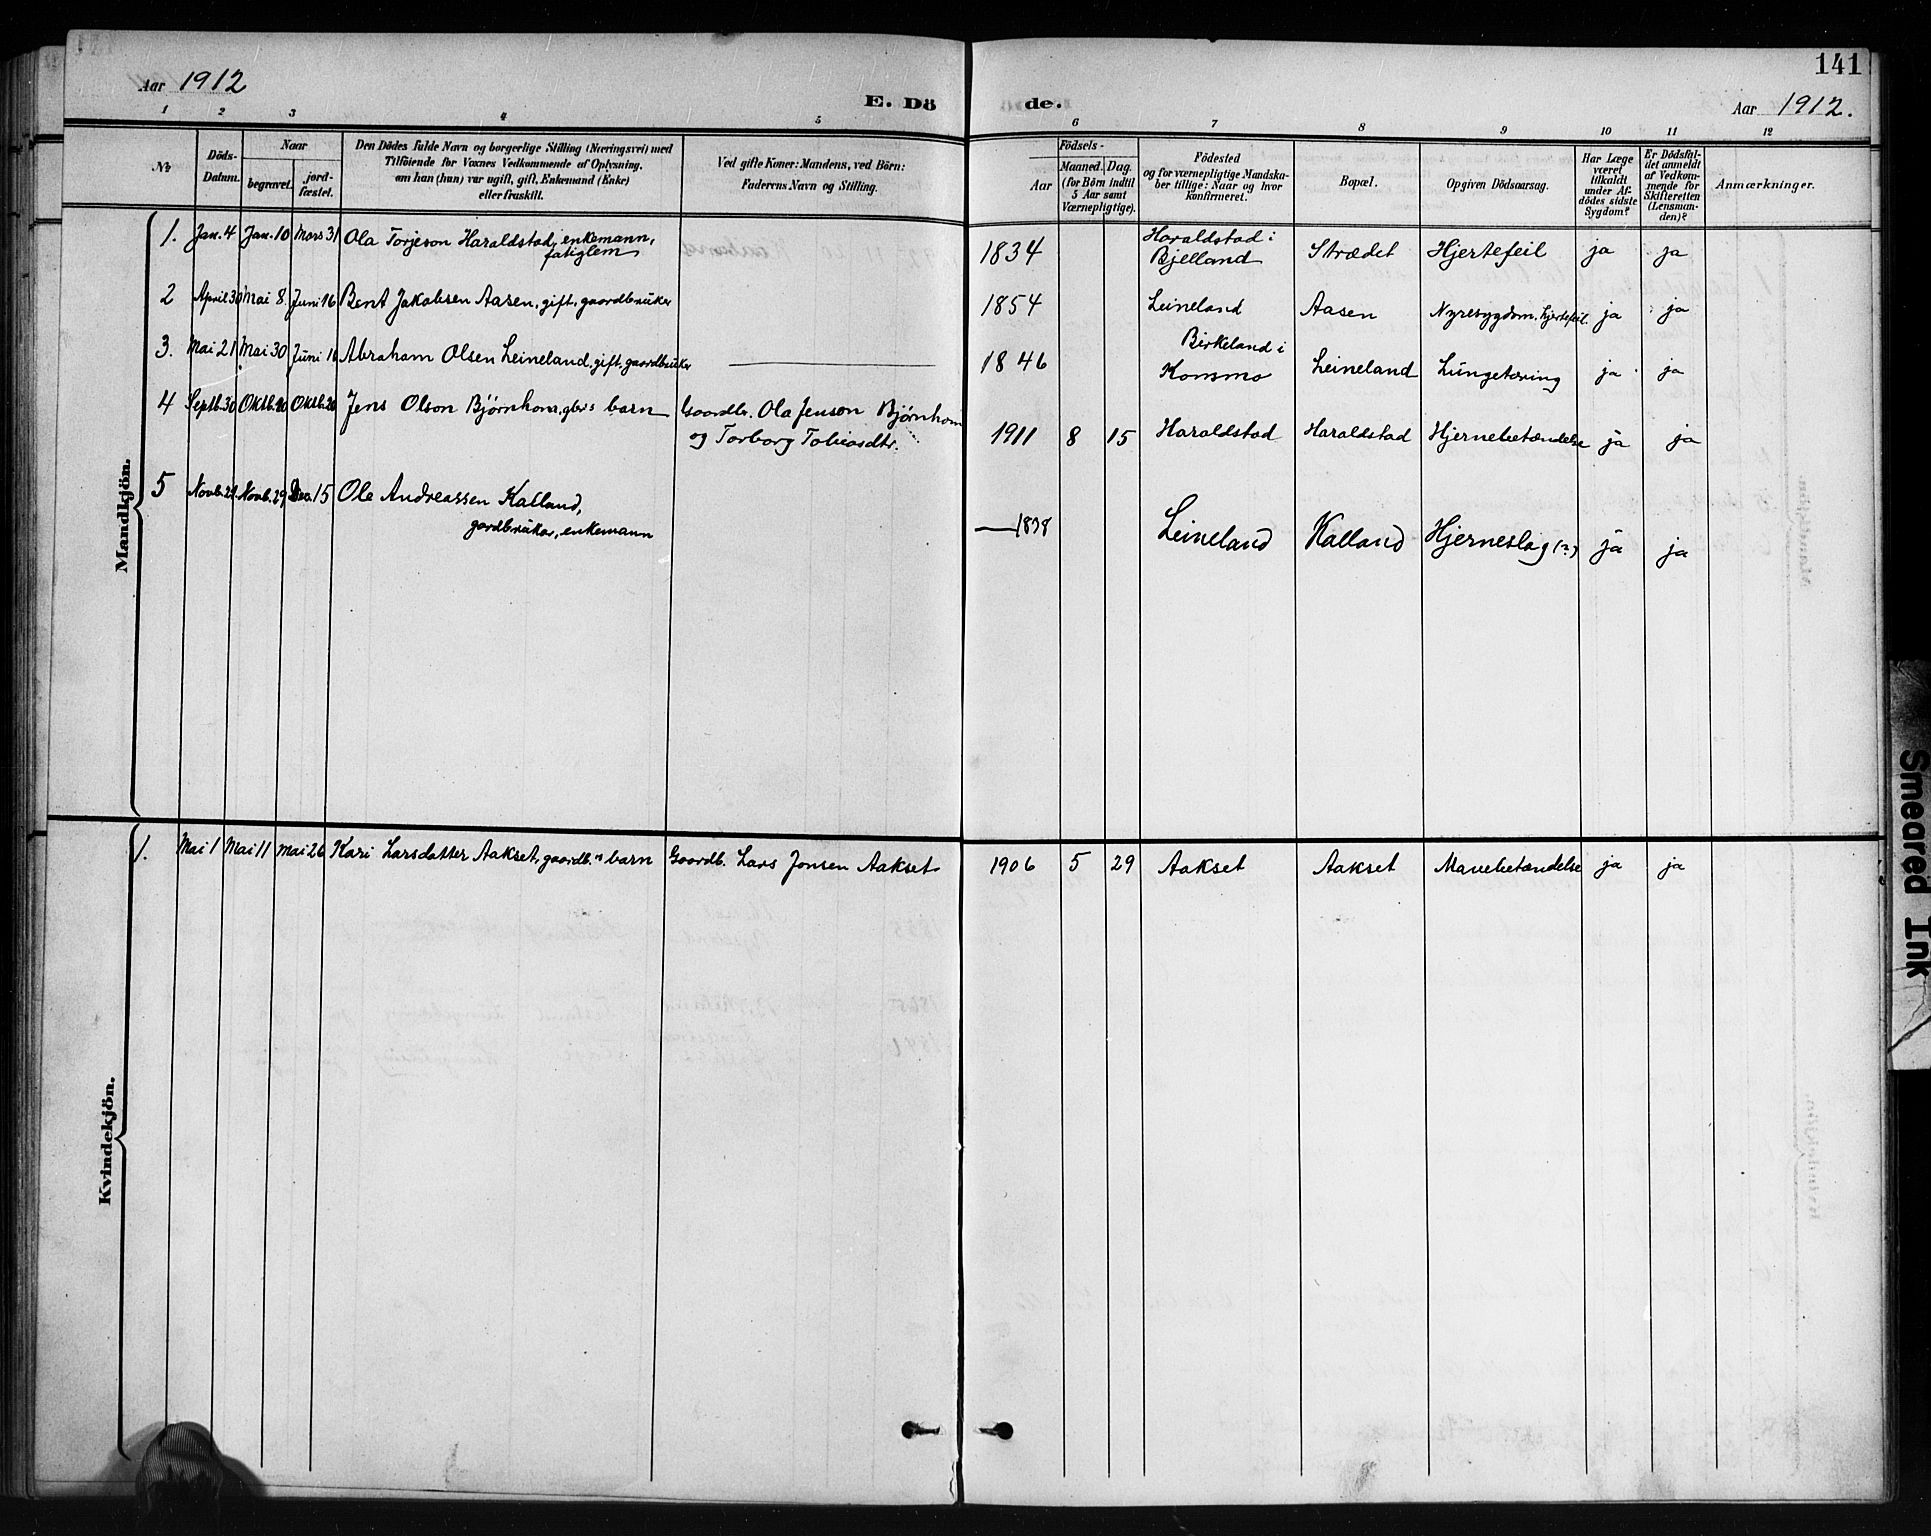 141
Aar 1912
E. Dö de.
Aar 1912.
1 2 3 4 5 6 7 8 9 10 11 12
No
Döds-
Datum.
Naar
begravet.
jord-
fæstet.
Den Dödes fulde Navn og borgerlige Stilling (Næringsvei) med
Tilföiende for Voxnes Vedkommende af Oplysning,
om han (hun) var ugift, gift, Enkemand (Enke)
eller fraskilt.
Ved gifte Koner: Mandens, ved Börn:
Faderens Navn og Stilling.
Födsels-
Aar
Maaned. Dag.
(for Börn indtil
5 Aar samt
Værnepligtige).
Födested
og for værnepligtige Mandska-
ber tillige: Naar og hvor
konfirmeret.
Bopæl.
Opgiven Dödsaarsag.
Har Læge
været
tilkaldt
under Af-
dödes sidste
Sygdom?
Er Dödsfal-
det anmeldt
af Vedkom-
mende for
Skifteretten
(Lensman-
den)?
Anmærkninger.
Mandkjön.
1. Jan. 4 Jan. 10 Mars 31 Ola Torjeson Haraldstad, enkemann,
fatiglem
1834 Haraldstad i
Bjelland Strædet Hjertefeil ja ja
2 April 30 Mai 8. Juni 16 Bent Jakobsen Aasen, gift, gaardbruker
1854 Leineland Aasen Nyresygdom. hjertefeil. ja ja
3. Mai 21 Mai 30 Juni 16 Abraham Olsen Leineland, gift, gaardbruker
1846 Birkeland i
Konsmo Leineland Lungetæring ja ja
4 Septb. 30 Oktb. 20 Oktb. 20 Jens Olson Bjørnhom, gbr's barn Gaardbr. Ola Jenson Bjørnhom
og Torborg Tobiasdtr.
1911 8 15 Haraldstad Haraldstad Hjernebetændelse ja ja
5 Novb. 21 Novb. 29 Des. 15 Ole Andreassen Kalland,
gardbrukar, enkemann
1838 Leineland Kalland Hjerneslag (?) ja ja
Kvindekjön.
1. Mai 1 Mai 11 Mai 26 Kari Larsdatter Aakset, gaardb.s barn Gaardb. Lars Jonsen Aakset
1906 5 29 Aakset Aakset Mavebetændelse ja ja
Smeared Ink